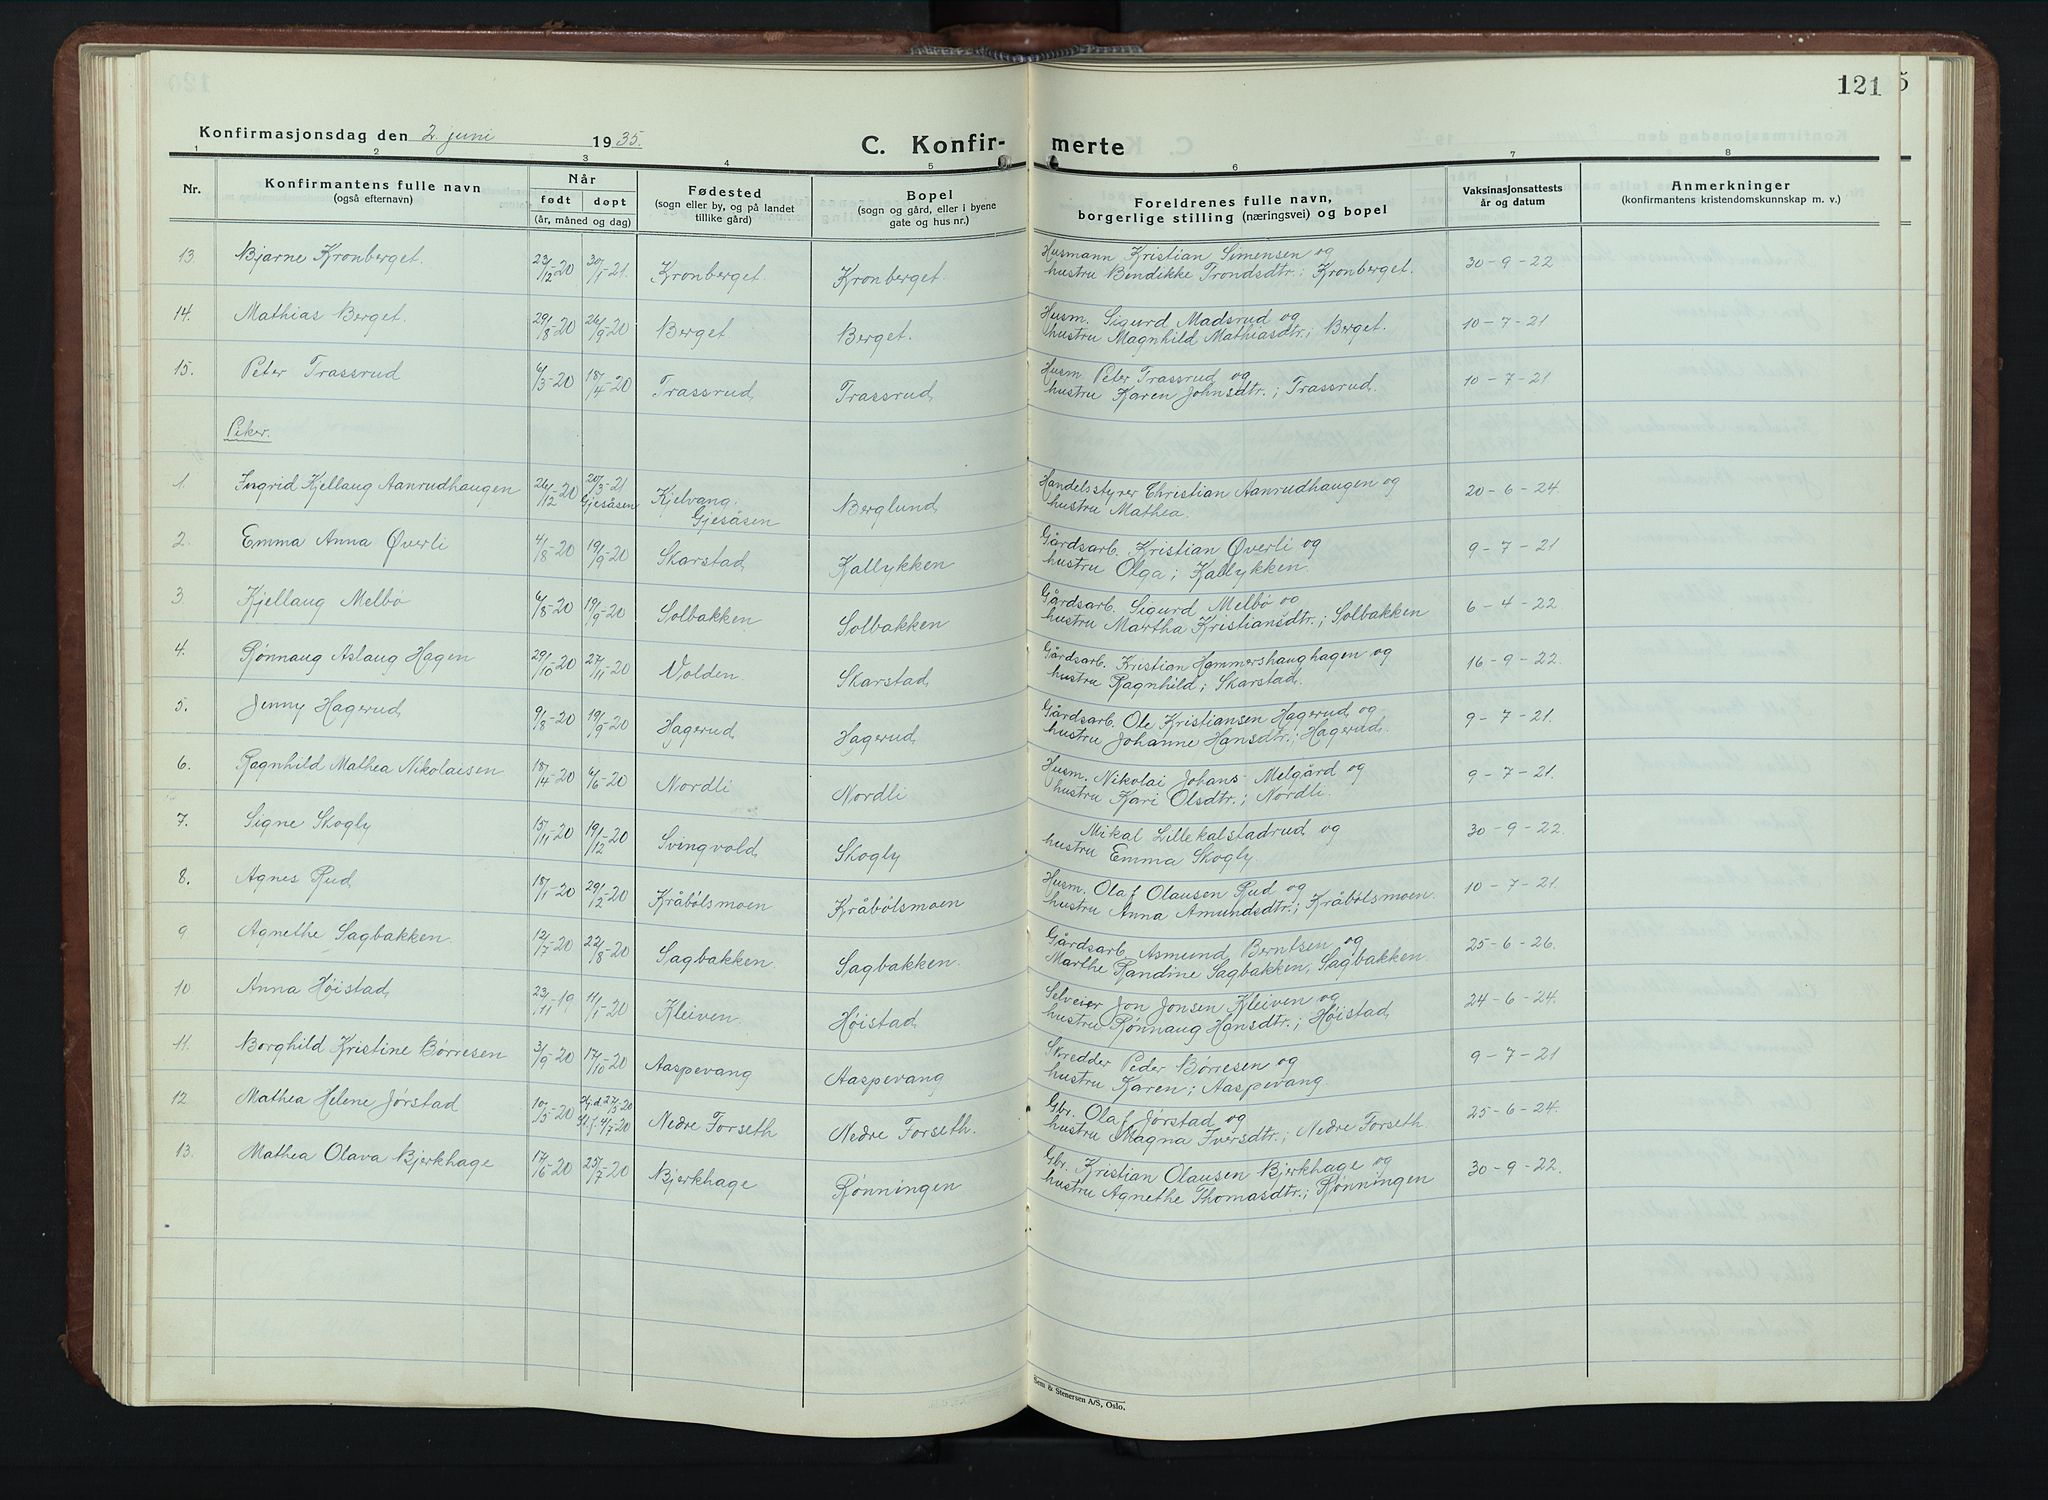 121
5
Konfirmasjonsdag den 2. juni 1935.
C. Konfir- merte
1 2 3 4 5 6 7 8
Nr.
Konfirmantens fulle navn
(også efternavn)
Når
født døpt
(år, måned og dag)
Fødested
(sogn eller by, og på landet
tillike gård)
Bopel
(sogn og gård, eller i byene
gate og hus nr.)
Foreldrenes fulle navn,
borgerlige stilling (næringsvei) og bopel
Vaksinasjonsattests
år og datum
Anmerkninger
(konfirmantens kristendomskunnskap m. v.)
13. Bjarne Kronberget. 23/12-20 30/1-21. Kronberget. Kronberget. Husmann Kristian Simensen og 30-9-22
hustru Bendikke Trondsdtr.; Kronberget.
14. Mathias Berget. 29/8-20 26/9-20 Berget. Berget. Husm. Sigurd Madsrud og 10-7-21
hustru Magnhild Mathiasdtr.; Berget.
15. Peter Trassrud 6/3-20 18/4-20 Trassrud Trassrud Husm. Peter Trassrud og 10-7-21
hustru Karen Johnsdtr.; Trassrud.
Piker.
1. Ingrid Kjellaug Aanrudhaugen 26/12-20 20/3-21 Gjesåsen Kjelvang, Gjesåsen Berglund Handelsstyrer Christian Aanrudhaugen og 20-6-24.
hustru Mathea.
2. Emma Anna Øverli 4/8-20 19/9-20 Skarstad Kallykken Gårdsarb. Kristian Øverli og 9-7-21
hustru Olga; Kallykken.
3. Kjellaug Melbø 6/8-20 19/9-20 Solbakken Solbakken Gårdsarb. Sigurd Melbø og 6-4-22.
hustru Martha Kristiansdtr.; Solbakken
4. Rønnaug Aslaug Hagen 29/10-20 27/11-20 Volden. Skarstad Gårdsarb. Kristian Hammershaughagen og 16-9-22.
hustru Ragnhild; Skarstad.
5. Jenny Hagerud 9/8-20 19/9-20 Hagerud Hagerud Gårdsarb. Ole Kristiansen Hagerud og 9-7-21.
hustru Johanne Hansdtr.; Hagerud.
6. Ragnhild Mathea Nikolaisen 18/4-20 6/6-20 Nordli Nordli Husm. Nikolai Johans. Melgård og 9-7-21.
hustru Kari Olsdtr.; Nordli.
7. Signe Skogly 15/11-20 19/12-20 Svingvold Skogly Mikal Lillekalstadrud og 30-9-22.
hustru Emma Skogly
8. Agnes Rud 18/1-20 29/2-20 Kråbølsmoen Kråbølsmoen Husm. Olaf Olausen Rud og 10-7-21.
hustru Anna Amundsdtr.; Kråbølsmoen.
9 Agnethe Sagbakken. 12/7-20 22/8-20 Sagbakken. Sagbakken. Gårdsarb. Asmund Berntsen og 25-6-26.
Marthe Randine Sagbakken; Sagbakken.
10. Anna Høistad 23/11-19 11/1-20 Kleiven. Høistad Selveier Jon Jonsen Kleiven og 24-6-24.
hustru Rønnaug Hansdtr.; Høistad
11. Borghild Kristine Børresen 3/9-20 17/10-20 Aaspevang Aaspevang Skredder Peder Børresen og 9-7-21
hustru Karen; Aaspevang
12. Mathea Helene Jørstad 10/5-20 Hj.d. 27/5-20 St.f. 4/7-20 Nedre Forseth Nedre Forseth. Gbr. Olaf Jørstad og 25-6-24.
hustru Magna Iversdtr.; Nedre Forseth.
13. Mathea Olava Bjerkhage 17/6-20 25/7-20 Bjerkhage Rønningen Gbr. Kristian Olausen Bjerkhage og 30-9-22.
hustru Agnethe Thomasdtr.; Rønningen
Sem & Stenersen A/S, Oslo.